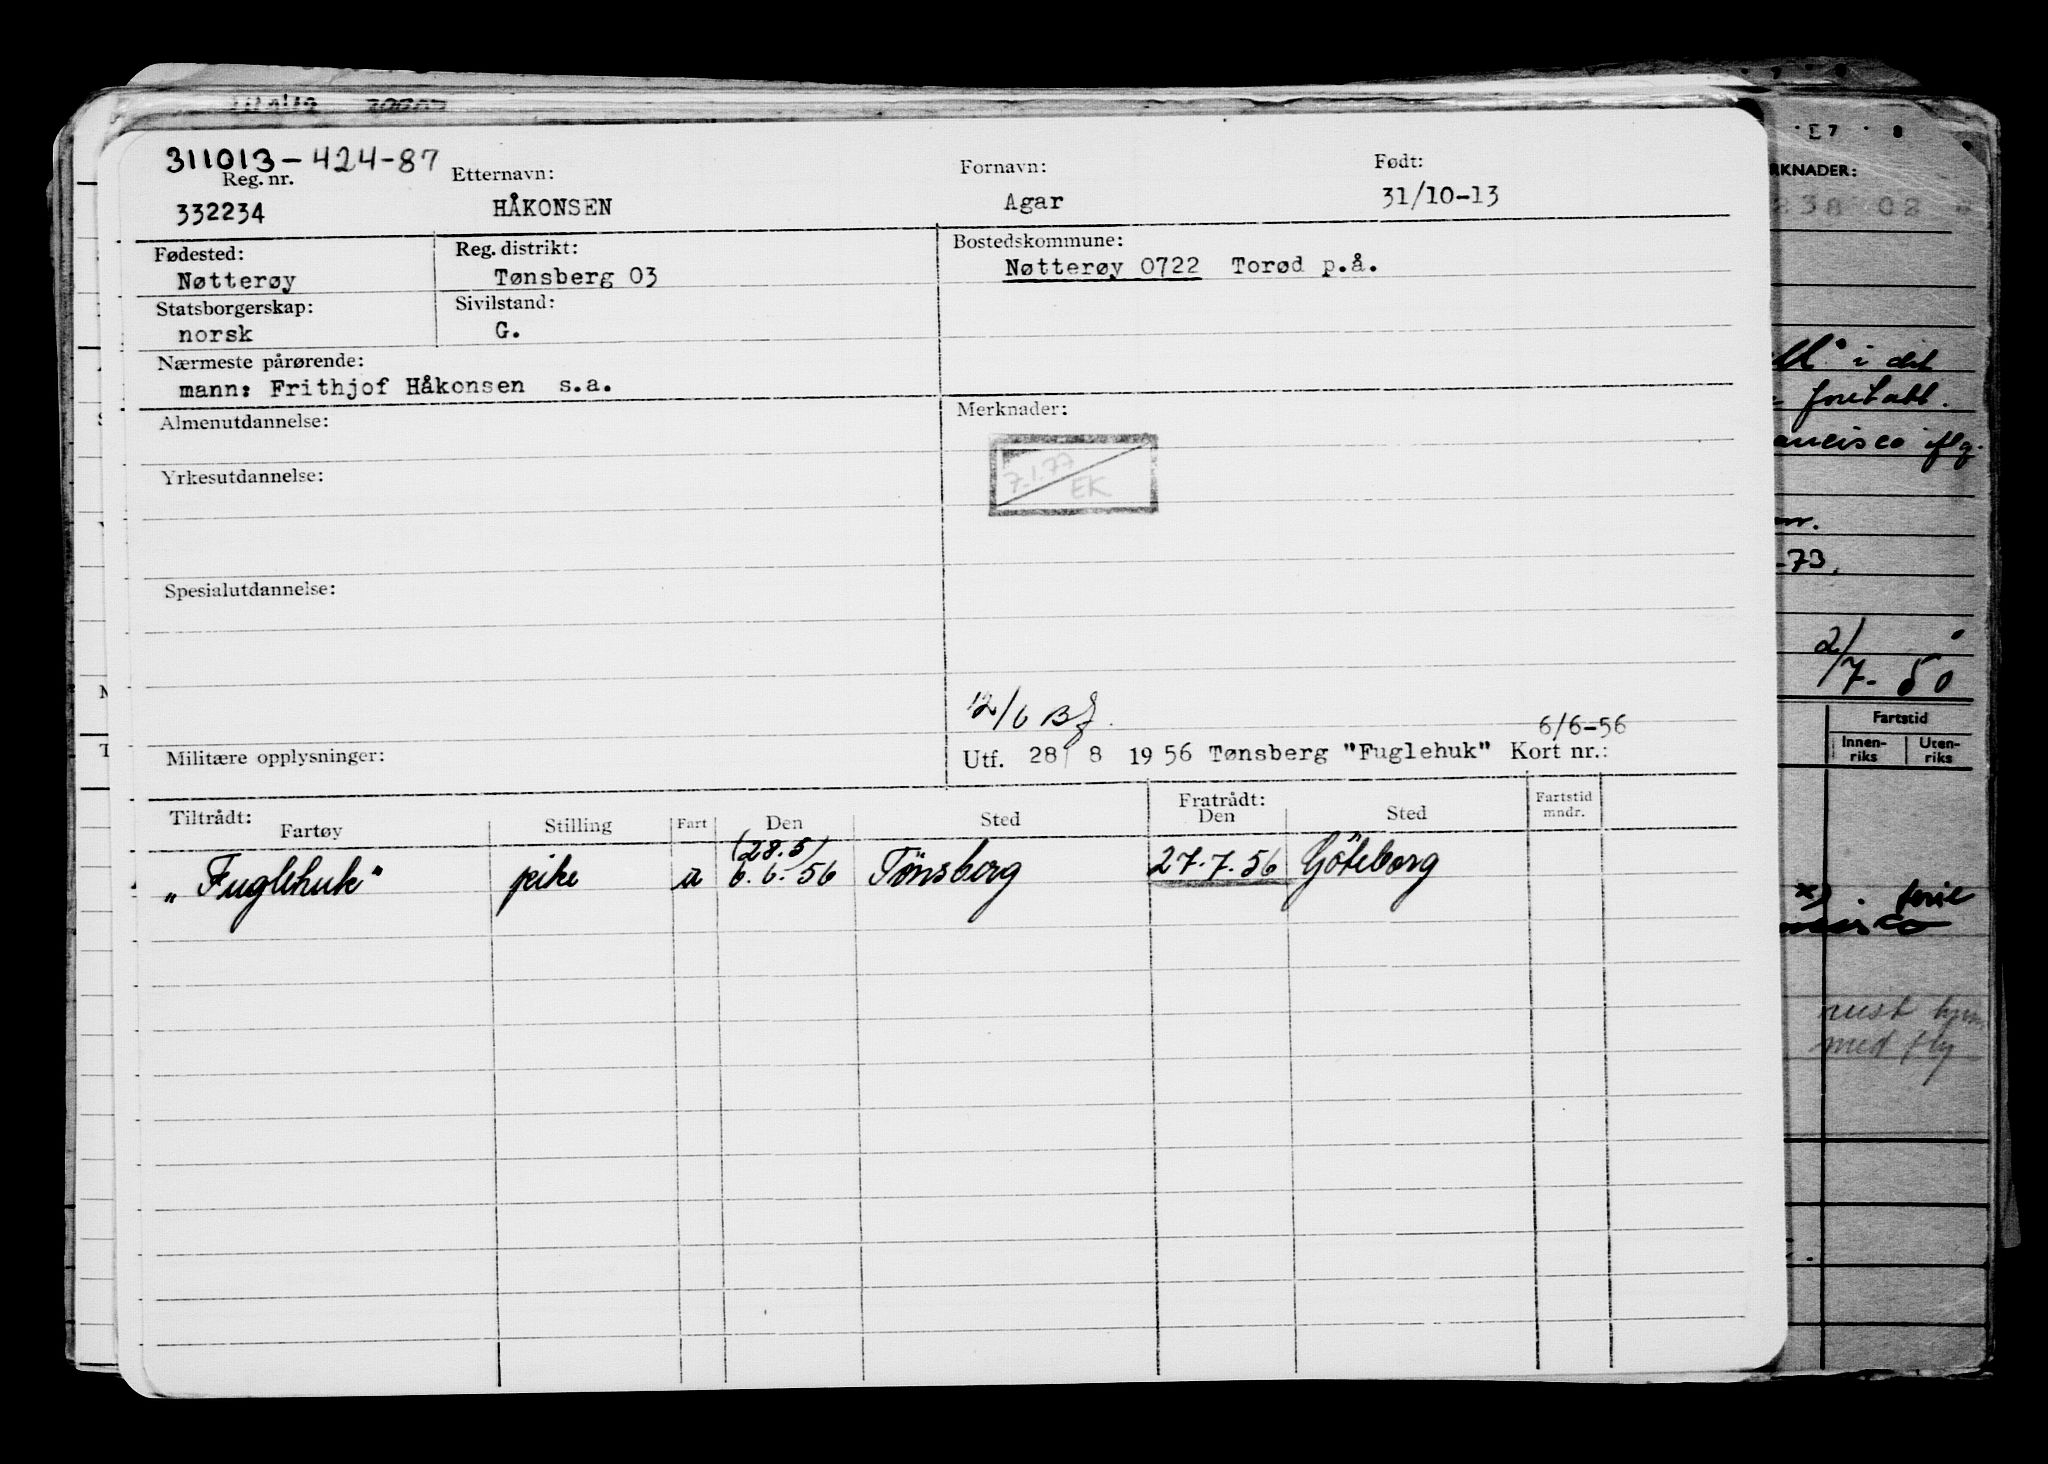 311013-424-87
Reg. nr. Etternavn: Fornavn: Født:
332234 HÅKONSEN Agar 31/10-13
Fødested: Reg. distrikt: Bostedskommune:
Nøtterøy Tønsberg 03 Nøtterøy 0722 Torød p.å.
Statsborgerskap: Sivilstand:
norsk G.
Nærmeste pårørende:
mann: Frithjof Håkonsen s.a.
Almenutdannelse: Merknader:
7.1.77
EK
Yrkesutdannelse:
Spesialutdannelse:
12/6
6/6-56
Militære opplysninger: Utf. 28/ 8 19 56 Tønsberg "Fuglehuk" Kort nr.:
Tiltrådt: Fratrådt: Fartstid
Fartøy Stilling Fart Den Sted Den Sted mndr.
(28.5)
"Fuglehuk" pike u 6.6.56 Tönsberg 27.7.56 Göteborg
E7 8
RKNADER:
238 02
i det
foretatt.
ancisco iflg.
-73.
2/7-50
Fartstid
Innen-
riks
Uten-
riks
x) ferie
reist hjem
med fly